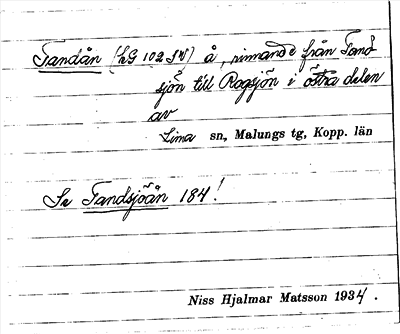 Tandån (LG 102 SV) å, rinnande från Tand-
sjön till Rogsjön i östra delen
av
Lima sn, Malungs tg, Kopp. län
Se Tandsjöån 184!
Niss Hjalmar Matsson 1934.